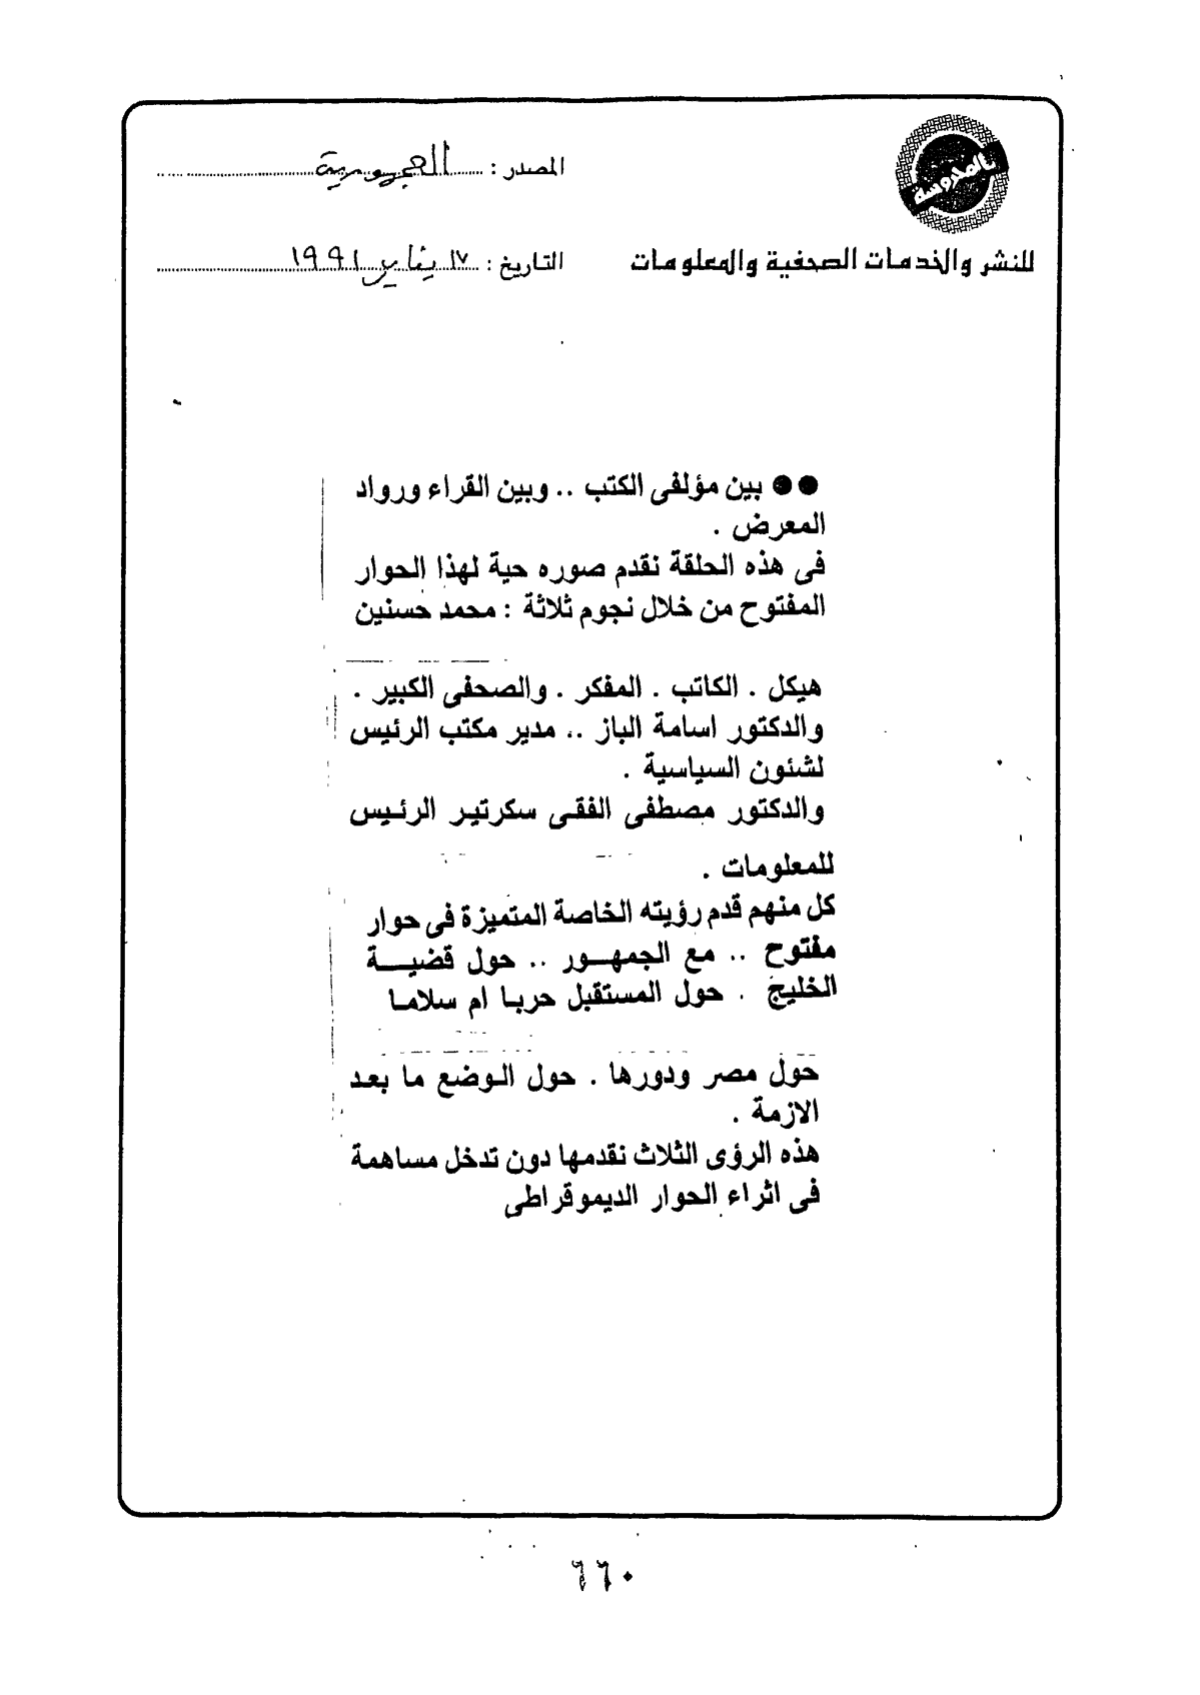 المحروسة
المصدر : الجمهورية
للنشر والخدمات الصحفية والمعلومات
التاريخ : ١٧ يناير ١٩٩١
●● بين مؤلفى الكتب .. وبين القراء ورواد
المعرض .
فى هذه الحلقة نقدم صوره حية لهذا الحوار
المفتوح من خلال نجوم ثلاثة : محمد حسنين
هيكل . الكاتب . المفكر . والصحفى الكبير .
والدكتور اسامة الباز .. مدير مكتب الرئيس
لشئون السياسية .
والدكتور مصطفى الفقى سكرتير الرئيس
للمعلومات .
كل منهم قدم رؤيته الخاصة المتميزة فى حوار
مفتوح .. مع الجمهور .. حول قضية
الخليج . حول المستقبل حربا ام سلاما
حول مصر ودورها . حول الوضع ما بعد
الازمة .
هذه الرؤى الثلاث نقدمها دون تدخل مساهمة
فى اثراء الحوار الديموقراطى
٦٦٠